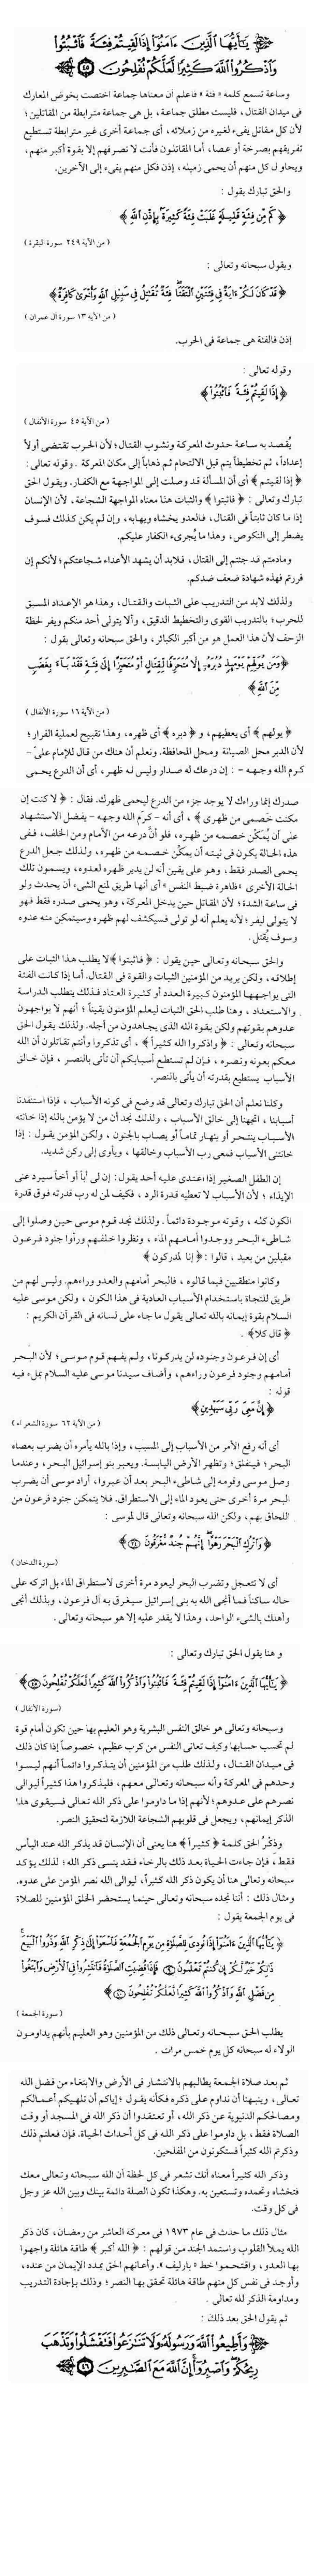 يَٰٓأَيُّهَا ٱلَّذِينَ ءَامَنُوٓا۟ إِذَا لَقِيتُمْ فِئَةً فَٱثْبُتُوا۟
وَٱذْكُرُوا۟ ٱللَّهَ كَثِيرًا لَّعَلَّكُمْ تُفْلِحُونَ ٤٥
وساعة تسمع كلمة « فئة » فاعلم أن معناها جماعة اختصت بخوض المعارك
فى ميدان القتال، فليست مطلق جماعة، بل هى جماعة مترابطة من المقاتلين؛
لأن كل مقاتل يفىء لغيره من زملائه، أى جماعة أخرى غير مترابطة تستطيع
تفريقهم بصرخة أو عصا، أما المقاتلون فأنت لا تصرفهم إلا بقوة أكبر منهم،
ويحاول كل منهم أن يحمى زميله، إذن فكل منهم يفىء إلى الآخرين.
والحق تبارك يقول :
﴿ كَم مِّن فِئَةٍ قَلِيلَةٍ غَلَبَتْ فِئَةً كَثِيرَةً بِإِذْنِ ٱللَّهِ ﴾
( من الآية ٢٤٩ سورة البقرة )
ويقول سبحانه وتعالى :
﴿ قَدْ كَانَ لَكُمْ ءَايَةٌ فِى فِئَتَيْنِ ٱلْتَقَتَا فِئَةٌ تُقَٰتِلُ فِى سَبِيلِ ٱللَّهِ وَأُخْرَىٰ كَافِرَةٌ ﴾
( من الآية ١٣ سورة آل عمران )
إذن فالفئة هى جماعة فى الحرب.
وقوله تعالى :
﴿ إِذَا لَقِيتُمْ فِئَةً فَٱثْبُتُوا۟ ﴾
( من الآية ٤٥ سورة الأنفال )
يُقصد به ساعة حدوث المعركة ونشوب القتال؛ لأن الحرب تقتضى أولاً
إعداداً، ثم تخطيطاً يتم قبل الالتحام ثم ذهاباً إلى مكان المعركة . وقوله تعالى :
﴿ إذا لقيتم ﴾ أى أن المسألة قد وصلت إلى المواجهة مع الكفار. ويقول الحق
تبارك وتعالى : ﴿ فاثبتوا ﴾ والثبات هنا معناه المواجهة الشجاعة، لأن الإنسان
إذا ما كان ثابتاً فى القتال، فالعدو يخشاه ويهابه، وإن لم يكن كذلك فسوف
يضطر إلى النكوص، وهذا ما يُجرىء الكفار عليكم.
ومادمتم قد جئتم إلى القتال، فلابد أن يشهد الأعداء شجاعتكم؛ لأنكم إن
فررتم فهذه شهادة ضعف ضدكم.
ولذلك لابد من التدريب على الثبات والقتال، وهذا هو الإعداد المسبق
للحرب؛ بالتدريب القوى والتخطيط الدقيق، وألا يتولى أحد منكم ويفر لحظة
الزحف لأن هذا العمل هو من أكبر الكبائر، والحق سبحانه وتعالى يقول :
﴿ وَمَن يُوَلِّهِمْ يَوْمَئِذٍ دُبُرَهُۥٓ إِلَّا مُتَحَرِّفًا لِّقِتَالٍ أَوْ مُتَحَيِّزًا إِلَىٰ فِئَةٍ فَقَدْ بَآءَ بِغَضَبٍ
مِّنَ ٱللَّهِ ﴾
( من الآية ١٦ سورة الأنفال )
﴿ يولهم ﴾ أى يعطيهم، و ﴿ دبره ﴾ أى ظهره، وهذا تقبيح لعملية الفرار؛
لأن الدبر محل الصيانة ومحل المحافظة. ونعلم أن هناك من قال للإمام علىّ -
كرم الله وجهه - : إن درعك له صدار وليس له ظهر، أى أن الدرع يحمى
صدرك إنما وراءك لا يوجد جزء من الدرع ليحمى ظهرك. فقال : ﴿ لا كنت إن
مكنت خصمى من ظهرى ﴾ ، أى أنه - كرّم الله وجهه - يفضل الاستشهاد
على أن يُمكّن خصمه من ظهره، فلو أنَّ درعه من الأمام ومن الخلف، ففى
هذه الحالة يكون فى نيته أن يمكّن خصمه من ظهره، ولذلك جعل الدرع
يحمى الصدر فقط، وهو على يقين أنه لن يدير ظهره لعدوه، ويسمون تلك
الحالة الأخرى «ظاهرة ضبط النفس» أى أنها طريق لمنع الشىء أن يحدث ولو
فى ساعة الشدة؛ لأن المقاتل حين يدخل المعركة، وهو يحمى صدره فقط فهو
لا يتولى ليفر؛ لأنه يعلم أنه لو تولى فسيكشف لهم ظهره وسيتمكن منه عدوه
وسوف يُقتل .
والحق سبحانه وتعالى حين يقول : ﴿ فاثبتوا ﴾ لا يطلب هذا الثبات على
إطلاقه، ولكن يريد من المؤمنين الثبات والقوة فى القتال. أما إذا كانت الفئة
التى يواجهها المؤمنون كبيرة العدد أو كثيرة العتاد فذلك يتطلب الدراسة
والاستعداد ، وهنا طلب الحق الثبات ليعلم المؤمنون يقيناً ؛ أنهم لا يواجهون
عدوهم بقوتهم ولكن بقوة الله الذى يجاهدون من أجله. ولذلك يقول الحق
سبحانه وتعالى : ﴿ واذكروا الله كثيراً ﴾ ، أى تذكروا وأنتم تقاتلون أن الله
معكم بعونه ونصره ، فإن لم تستطع أسبابكم أن تأتى بالنصر ، فإن خالق
الأسباب يستطيع بقدرته أن يأتى بالنصر.
وكلنا نعلم أن الحق تبارك وتعالى قد وضع فى كونه الأسباب ، فإذا استنفدنا
أسبابنا ، اتجهنا إلى خالق الأسباب ، ولذلك نجد أن من لا يؤمن بالله إذا خانته
الأسباب ينتحر أو ينهار تماماً أو يصاب بالجنون ، ولكن المؤمن يقول : إذا
خانتنى الأسباب فمعى رب الأسباب وخالقها ، ويأوى إلى ركن شديد.
إن الطفل الصغير إذا اعتدى عليه أحد يقول : إن لى أباً أو أخاً سيرد عنى
الإيذاء ؛ لأن الأسباب لا تعطيه قدرة الرد ، فكيف لمن له رب قدرته فوق قدرة
الكون كله ، وقوته موجودة دائماً . ولذلك نجد قوم موسى حين وصلوا إلى
شاطىء البحر ووجدوا أمامهم الماء ، ونظروا خلفهم ورأوا جنود فرعون
مقبلين من بعيد ، قالوا : ﴿ إنا لمدركون ﴾
وكانوا منطقيين فيما قالوه ، فالبحر أمامهم والعدو وراءهم. وليس لهم من
طريق للنجاة باستخدام الأسباب العادية فى هذا الكون ، ولكن موسى عليه
السلام بقوة إيمانه بالله تعالى يقول ما جاء على لسانه فى القرآن الكريم :
﴿ قال كلا ﴾ .
أى إن فرعون وجنوده لن يدركونا، ولم يفهم قوم موسى ؛ لأن البحر
أمامهم وجنود فرعون وراءهم ، وأضاف سيدنا موسى عليه السلام بملء فيه
قوله :
﴿ إِنَّ مَعِىَ رَبِّى سَيَهْدِينِ ﴾
( من الآية ٦٢ سورة الشعراء )
أى أنه رفع الأمر من الأسباب إلى المسبب، وإذا بالله يأمره أن يضرب بعصاه
البحر؛ فينفلق؛ وتظهر الأرض اليابسة. ويعبر بنو إسرائيل البحر، وعندما
وصل موسى وقومه إلى شاطىء البحر بعد أن عبروا، أراد موسى أن يضرب
البحر مرة أخرى حتى يعود الماء إلى الاستطراق. فلا يتمكن جنود فرعون من
اللحاق بهم، ولكن الله سبحانه وتعالى قال لموسى :
﴿ وَٱتْرُكِ ٱلْبَحْرَ رَهْوًا إِنَّهُمْ جُندٌ مُّغْرَقُونَ ٢٤ ﴾
(سورة الدخان)
أى لا تتعجل وتضرب البحر ليعود مرة أخرى لاستطراق الماء بل اتركه على
حاله ساكناً فما أنجى الله به بنى إسرائيل سيغرق به آل فرعون، وبذلك أنجى
وأهلك بالشىء الواحد، وهذا لا يقدر عليه إلا هو سبحانه وتعالى.
وهنا يقول الحق تبارك وتعالى :
﴿ يَٰٓأَيُّهَا ٱلَّذِينَ ءَامَنُوٓا۟ إِذَا لَقِيتُمْ فِئَةً فَٱثْبُتُوا۟ وَٱذْكُرُوا۟ ٱللَّهَ كَثِيرًا لَّعَلَّكُمْ تُفْلِحُونَ ٤٥ ﴾
(سورة الأنفال)
وسبحانه وتعالى هو خالق النفس البشرية وهو العليم بها حين تكون أمام قوة
لم تحسب حسابها وكيف تعانى النفس من كرب عظيم، خصوصاً إذا كان ذلك
فى ميدان القتال، ولذلك طلب من المؤمنين أن يتذكروا دائماً أنهم ليسوا
وحدهم فى المعركة وأنه سبحانه وتعالى معهم، فليذكروا هذا كثيراً ليوالى
نصرهم على عدوهم؛ لأنهم إذا ما داوموا على ذكر الله تعالى فسيقوى هذا
الذكر إيمانهم، ويجعل فى قلوبهم الشجاعة اللازمة لتحقيق النصر.
وذكْرُ الحق كلمة ﴿ كثيراً ﴾ هنا يعنى أن الإنسان قد يذكر الله عند اليأس
فقط، فإن جاءت الحياة بعد ذلك بالرخاء فقد ينسى ذكر الله؛ لذلك يؤكد
سبحانه وتعالى هنا أن يكون ذكر الله كثيراً، ليوالى الله نصر المؤمن على عدوه.
ومثال ذلك : أننا نجده سبحانه وتعالى حينما يستحضر الخلق المؤمنين للصلاة
فى يوم الجمعة يقول :
﴿ يَٰٓأَيُّهَا ٱلَّذِينَ ءَامَنُوٓا۟ إِذَا نُودِىَ لِلصَّلَوٰةِ مِن يَوْمِ ٱلْجُمُعَةِ فَٱسْعَوْا۟ إِلَىٰ ذِكْرِ ٱللَّهِ وَذَرُوا۟ ٱلْبَيْعَ
ذَٰلِكُمْ خَيْرٌ لَّكُمْ إِن كُنتُمْ تَعْلَمُونَ ٩ فَإِذَا قُضِيَتِ ٱلصَّلَوٰةُ فَٱنتَشِرُوا۟ فِى ٱلْأَرْضِ وَٱبْتَغُوا۟
مِن فَضْلِ ٱللَّهِ وَٱذْكُرُوا۟ ٱللَّهَ كَثِيرًا لَّعَلَّكُمْ تُفْلِحُونَ ١٠ ﴾
( سورة الجمعة )
يطلب الحق سبحانه وتعالى ذلك من المؤمنين وهو العليم بأنهم يداومون
الولاء له سبحانه كل يوم خمس مرات .
ثم بعد صلاة الجمعة يطالبهم بالانتشار فى الأرض والابتغاء من فضل الله
تعالى، وينبهنا أن نداوم على ذكره فكأنه يقول ؛ إياكم أن تلهيكم أعمالكم
ومصالحكم الدنيوية عن ذكر الله، أو تعتقدوا أن ذكر الله فى المسجد أو وقت
الصلاة فقط، بل داوموا على ذكر الله فى كل أحداث الحياة. فإن فعلتم ذلك
وذكرتم الله كثيراً فستكونون من المفلحين.
وذكر الله كثيراً معناه أنك تشعر فى كل لحظة أن الله سبحانه وتعالى معك
فتخشاه وتحمده وتستعين به. وهكذا تكون الصلة دائمة بينك وبين الله عز وجل
فى كل وقت.
مثال ذلك ما حدث فى عام ١٩٧٣ فى معركة العاشر من رمضان، كان ذكر
الله يملأ القلوب واستمد الجند من قولهم : ﴿ الله أكبر ﴾ طاقة هائلة واجهوا
بها العدو، واقتحموا خط «بارليف». وأعانهم الحق بمدد الإيمان من عنده،
وأوجد فى نفس كل منهم طاقة هائلة تحقق بها النصر؛ وذلك بإجادة التدريب
ومداومة الذكر لله تعالى .
ثم يقول الحق بعد ذلك :
وَأَطِيعُوا۟ ٱللَّهَ وَرَسُولَهُۥ وَلَا تَنَٰزَعُوا۟ فَتَفْشَلُوا۟ وَتَذْهَبَ
رِيحُكُمْ وَٱصْبِرُوٓا۟ إِنَّ ٱللَّهَ مَعَ ٱلصَّٰبِرِينَ ٤٦